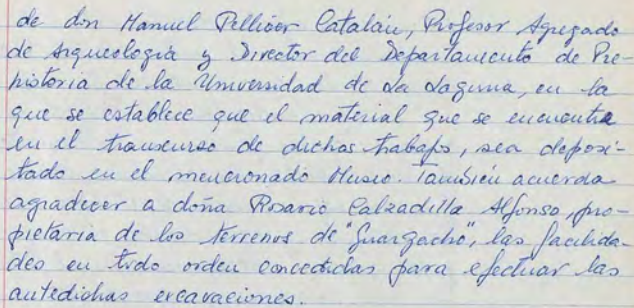 de don Manuel Pellicer Catalán, Profesor Agregado
de Arqueología y Director del Departamento de Pre-
historia de la Universidad de La Laguna, en la
que se establece que el material que se encuentra
en el transcurso de dichos trabajos, sea deposi-
tado en el mencionado Museo. También acuerda
agradecer a doña Rosario Calzadilla Alfonso, pro-
pietaria de los terrenos de "Guargacho", las facilida-
des en todo orden concedidas para efectuar las
antedichas excavaciones.